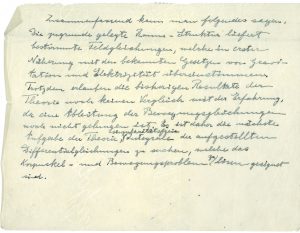 Zusammenfassend kann man folgendes sagen.
Die zugrunde gelegte Raum-Struktur liefert
bestimmte Feldgleichungen, welche in erster
Näherung mit den bekannten Gesetzen von Gravi-
tation und Elektrizität übereinstimmen.
Trotzdem erlauben die bisherigen Resultate der
Theorie noch keinen Vergleich mit der Erfahrung,
da eine Ableitung der Bewegungsgleichungen
noch nicht gelungen ist. Es ist daher das nächste
singularitätsfreie
Aufgabe der Theorie, Integrale der aufgestellten
Differentialgleichungen zu suchen, welche das
Korpuskel- und Bewegungsproblem zu lösen geeignet
sind.